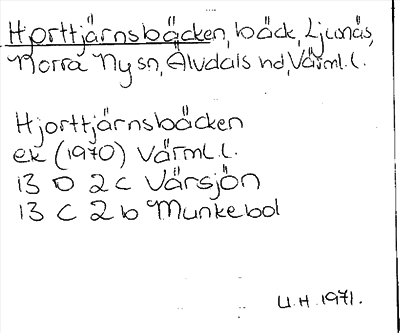 Hjorttjärnsbäcken, bäck, Ljusnäs,
Norra Ny sn, Älvdals hd, Värml. l.
Hjorttjärnsbäcken
ek (1970) Värml. l.
13 D 2 c Värsjön
13 C 2 b Munkebol
U.H. 1971.